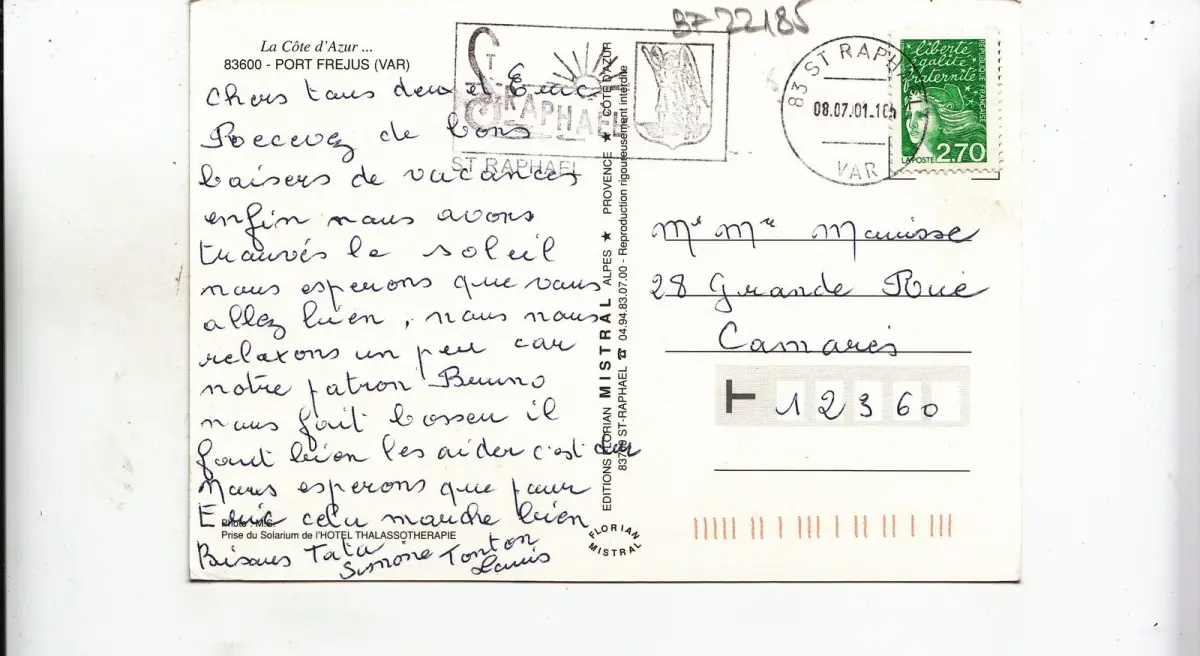 BF 22185
La Côte d'Azur ...
83600 - PORT FREJUS (VAR)
Chers tous deux et Eric
Recevez de bons
baisers de vacances
enfin nous avons
trouvés le soleil
nous esperons que vous
allez bien, nous nous
relaxons un peu car
notre patron Bruno
nous fait bosser il
faut bien les aider c'est dur
Nous esperons que pour
Eric cela marche bien
Photo : M.G.
Prise du Solarium de l'HOTEL THALASSOTHERAPIE
Bisous Tata Simone Tonton
Louis
ST RAPHAEL
ST RAPHAEL
EDITIONS FLORIAN MISTRAL ALPES ★ PROVENCE ★ CÔTE D'AZUR
83700 ST-RAPHAEL ☎ 04.94.83.07.00 - Reproduction rigoureusement interdite
FLORIAN
MISTRAL
83 ST RAPHAEL
08.07.01.16h
VAR
liberté
égalité
fraternité
REPUBLIQUE FRANÇAISE
LA POSTE 2,70
Mr Mme Manisse
28 Grande Rue
Camarès
T 12360